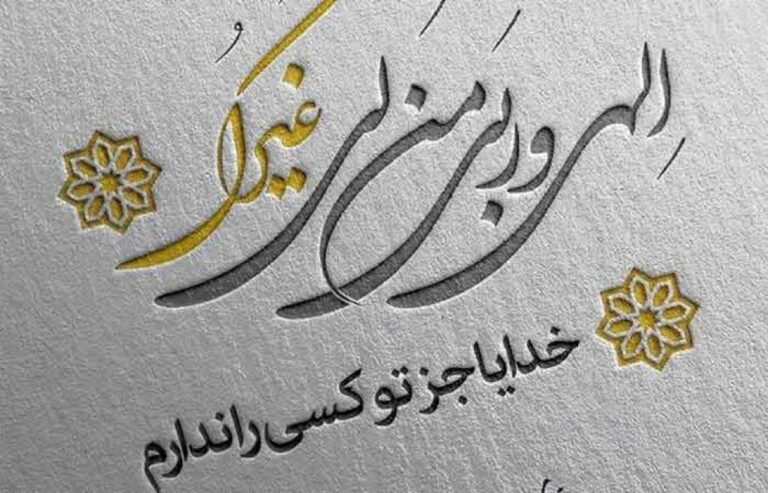 الهی و ربی من لی غیرک
خدایا جز تو کسی را ندارم